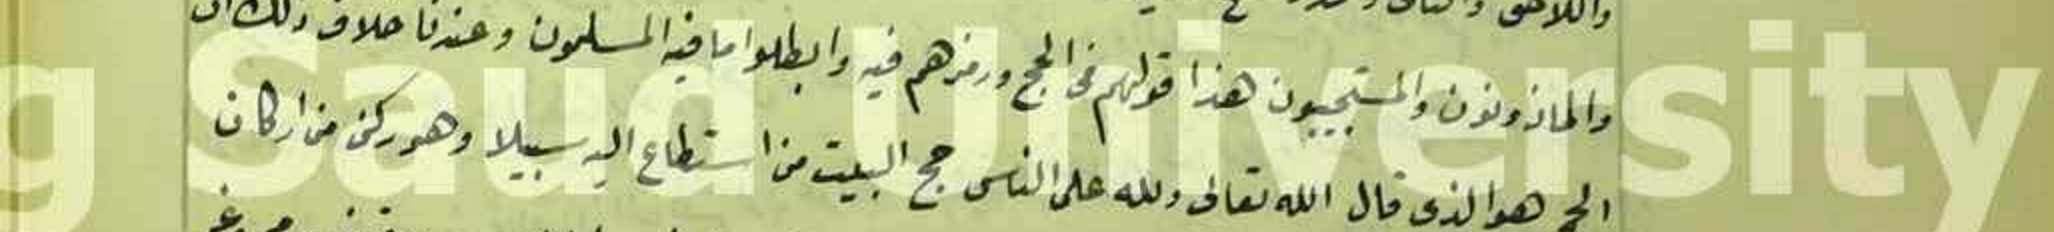 واللاحق
والماذونون والمستجيبون هذا قولهم فى الحج ورمزهم فيه وابطلوا ما فيه المسلمون وعندنا خلاف ذلك ان
الحج هو الذى قال الله تعالى ولله على الناس حج البيت من استطاع اليه سبيلا وهو ركن من اركان
g Saud University